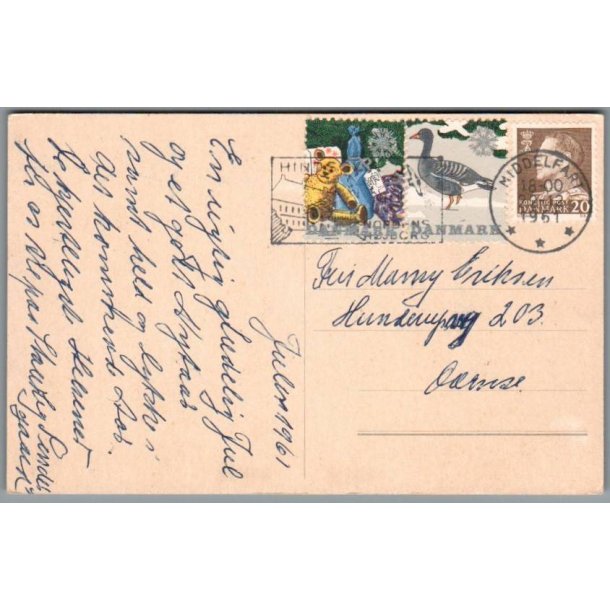 Julen 1961
En rigtig glædelig Jul
og et godt Nytaar
samt held og lykke i
det kommende Aar.
Hjerteligst Hennet
fra os alle paa
HIN
NORDENS
DANMARK
MIDDELFART
18-00
1961
KONGELIG POST
DANMARK 20
Eriksen
Hunderupvej 203.
Odense.